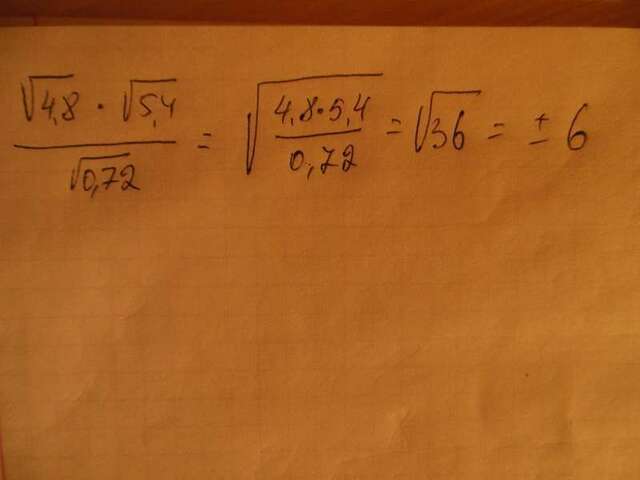 \frac{\sqrt{4,8} \cdot \sqrt{5,4}}{\sqrt{0,72}} = \sqrt{\frac{4,8 \cdot 5,4}{0,72}} = \sqrt{36} = \pm 6